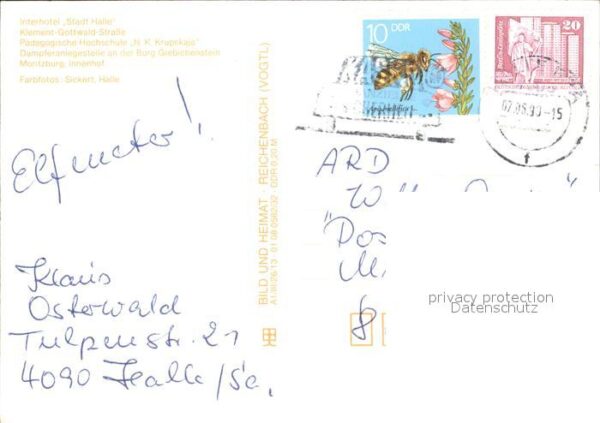 Interhotel „Stadt Halle"
Klement-Gottwald-Straße
Pädagogische Hochschule „N. K. Krupskaja"
Dampferanlegestelle an der Burg Giebichenstein
Moritzburg, Innenhof
Farbfotos: Sickert, Halle
Elfmeter!
Klaus
Osterwald
Tulpenstr. 21
4090 Halle/Sa.
BILD UND HEIMAT · REICHENBACH (VOGTL)
A1/III/26/13 01 08 0562/32 · DDR 0,20 M
10 DDR
20
07.06.90-15
ARD
"Dos
M
8
privacy protection
Datenschutz